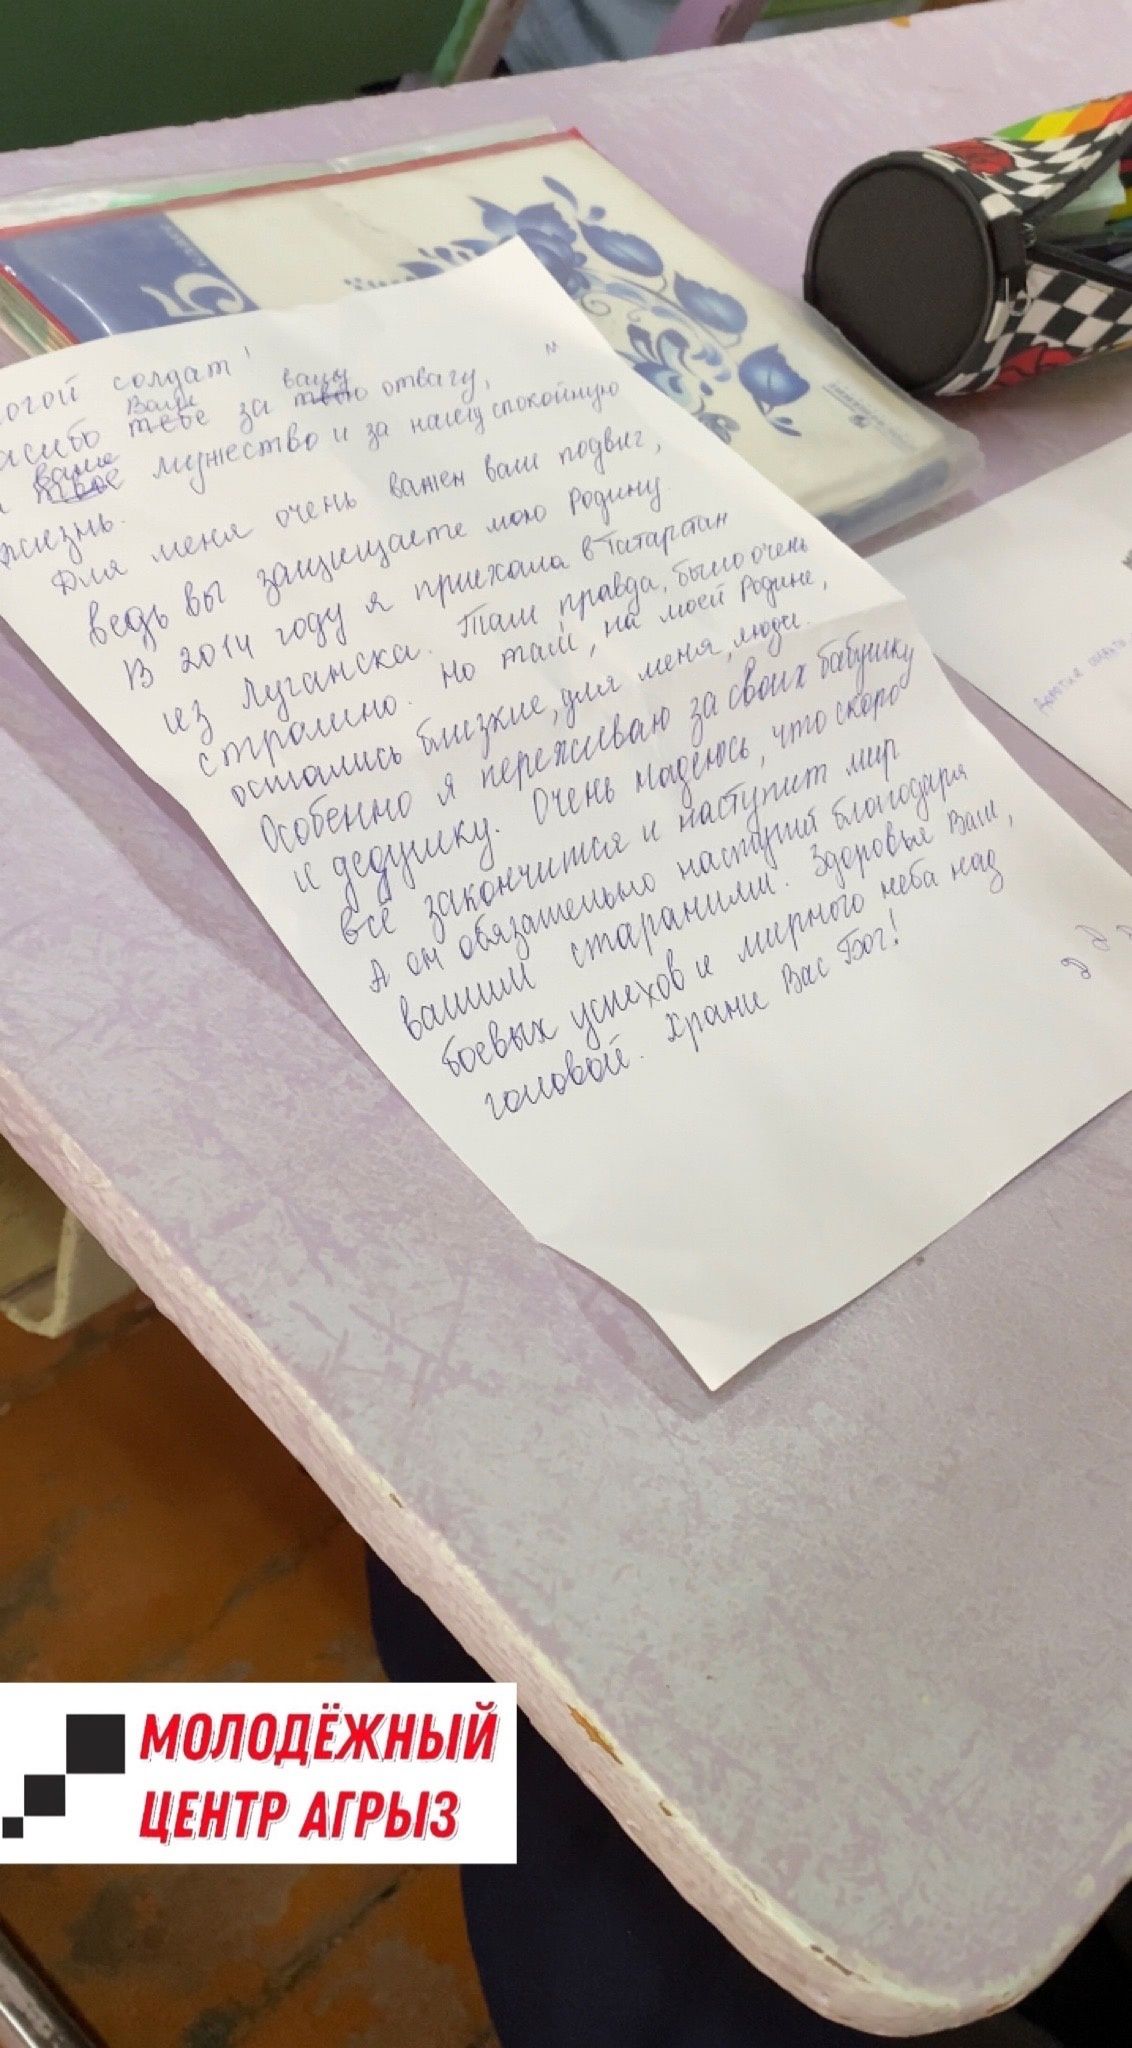 огой солдат!
асибо Вам тебе за вашу твою отвагу,
и ваше твое мужество и за нашу спокойную
жизнь.
Для меня очень важен ваш подвиг,
ведь вы защищаете мою Родину.
В 2014 году я приехала в Татарстан
из Луганска. Там правда, было очень
страшно. Но там, на моей Родине,
остались близкие, для меня, люди.
Особенно я переживаю за своих бабушку
и дедушку. Очень надеюсь, что скоро
всё закончится и наступит мир
А он обязательно наступит благодаря
вашим стараниям. Здоровья Вам,
боевых успехов и мирного неба над
головой. Храни Вас Бог!
5
МОЛОДЁЖНЫЙ
ЦЕНТР АГРЫЗ